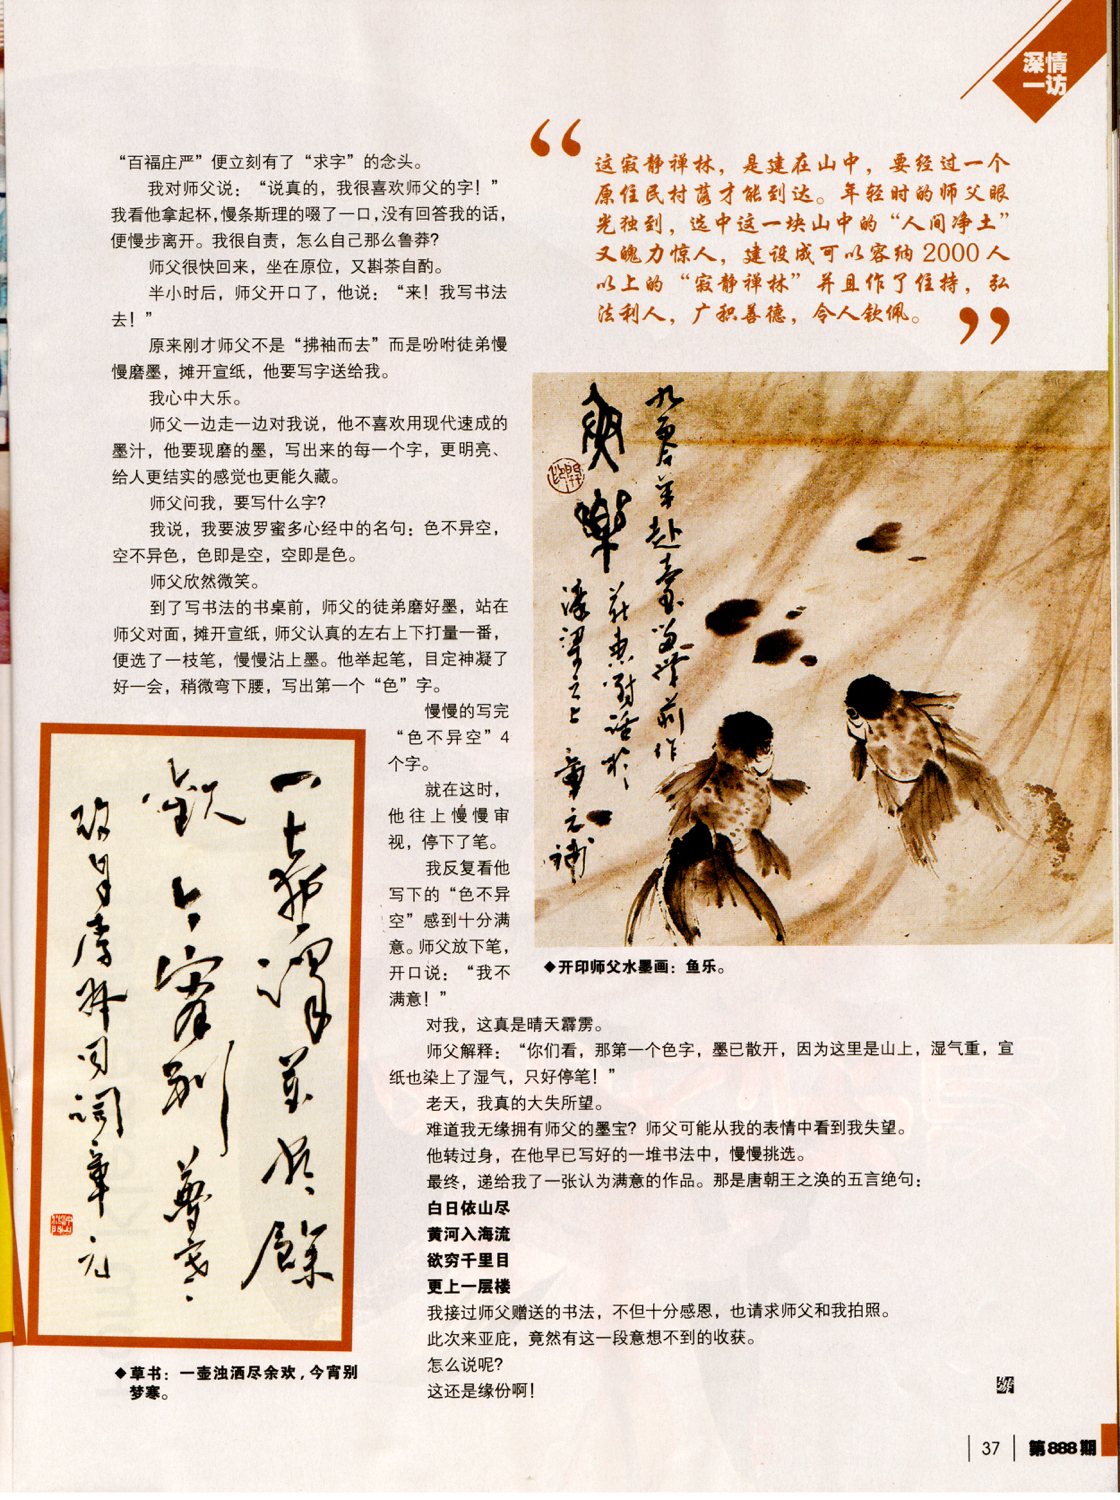 深情
一访
“百福庄严”便立刻有了“求字”的念头。
我对师父说：“说真的，我很喜欢师父的字！”
我看他拿起杯，慢条斯理的啜了一口，没有回答我的话，
便慢步离开。我很自责，怎么自己那么鲁莽？
师父很快回来，坐在原位，又斟茶自酌。
半小时后，师父开口了，他说：“来！我写书法
去！”
原来刚才师父不是“拂袖而去”而是吩咐徒弟慢
慢磨墨，摊开宣纸，他要写字送给我。
我心中大乐。
师父一边走一边对我说，他不喜欢用现代速成的
墨汁，他要现磨的墨，写出来的每一个字，更明亮、
给人更结实的感觉也更能久藏。
师父问我，要写什么字？
我说，我要波罗蜜多心经中的名句：色不异空，
空不异色，色即是空，空即是色。
师父欣然微笑。
到了写书法的书桌前，师父的徒弟磨好墨，站在
师父对面，摊开宣纸，师父认真的左右上下打量一番，
便选了一枝笔，慢慢沾上墨。他举起笔，目定神凝了
好一会，稍微弯下腰，写出第一个“色”字。
慢慢的写完
“色不异空”4
个字。
就在这时，
他往上慢慢审
视，停下了笔。
我反复看他
写下的“色不异
空”感到十分满
意。师父放下笔，
开口说：“我不
满意！”
对我，这真是晴天霹雳。
师父解释：“你们看，那第一个色字，墨已散开，因为这里是山上，湿气重，宣
纸也染上了湿气，只好停笔！”
老天，我真的大失所望。
难道我无缘拥有师父的墨宝？师父可能从我的表情中看到我失望。
他转过身，在他早已写好的一堆书法中，慢慢挑选。
最终，递给我了一张认为满意的作品。那是唐朝王之涣的五言绝句：
白日依山尽
黄河入海流
欲穷千里目
更上一层楼
我接过师父赠送的书法，不但十分感恩，也请求师父和我拍照。
此次来亚庇，竟然有这一段意想不到的收获。
怎么说呢？
这还是缘份啊！
“
这寂静禅林，是建在山中，要经过一个
原住民村落才能到达。年轻时的师父眼
光独到，选中这一块山中的“人间净土”
又魄力惊人，建设成可以容纳2000人
以上的“寂静禅林”并且作了住持，弘
法利人，广积善德，令人钦佩。
”
鱼樂
◆开印师父水墨画：鱼乐。
一壶濁酒盡餘
歡今宵别夢寒
◆草书：一壶浊酒尽余欢，今宵别
梦寒。
37
第888期